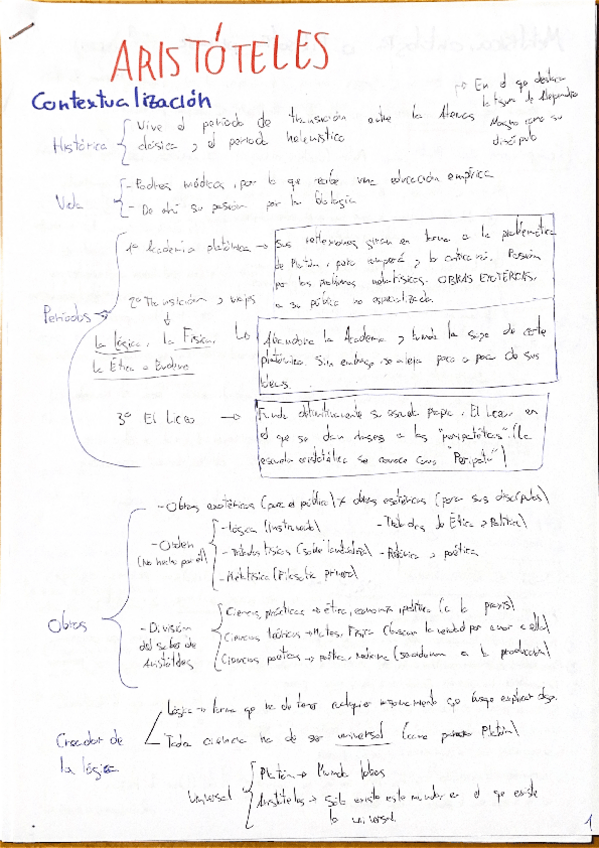 ARISTÓTELES
Contextualización
→ En el que destaca
la figura de Alejandro
Magno como su
discípulo
Histórica
Vive el periodo de transición entre la Atenas
clásica y el periodo helenístico
Vida
- Padres médicos, por lo que recibe una educación empírica
- De ahí su pasión por la biología
Periodos →
1º Academia platónica →
Sus reflexiones giran en torno a la problemática
de Platón, pero
por los problemas metafísicos. OBRAS EXOTÉRICAS,
a un público no especializado.
2º Transición y viajes
↓
la lógica, la Física,
la Ética a Eudemo
Abandona la Academia y funda la suya de corte
platónico. Sin embargo, se aleja poco a poco de sus
ideas.
3º El Liceo →
Funda definitivamente su escuela propia. El Liceo, en
el que se dan clases a los "peripatéticos". (La
escuela aristotélica se conoce como "Peripato")
Obras
- Obras exotéricas (para el público) ≠ obras esotéricas (para sus discípulos)
- Orden
(No hecho por él)
- Lógica (Instrumento)
- Tratados físicos (sobre la naturaleza)
- Metafísica (Filosofía primera)
- Tratados de Ética y Política
- Retórica y poética
- División
del saber de
Aristóteles
Ciencias prácticas → ética, economía, política (a la praxis)
Ciencias teóricas → Mates, Física (buscan la verdad por amor a ella)
Ciencias poéticas → poética, medicina (a la producción)
Creador de
la lógica
Lógica → forma que ha de tener cualquier razonamiento que luego explicar algo.
Toda ciencia ha de ser universal (como para Platón)
Universal
Platón → Mundo Ideas
Aristóteles → Solo existe este mundo en el que existe
lo universal.
1